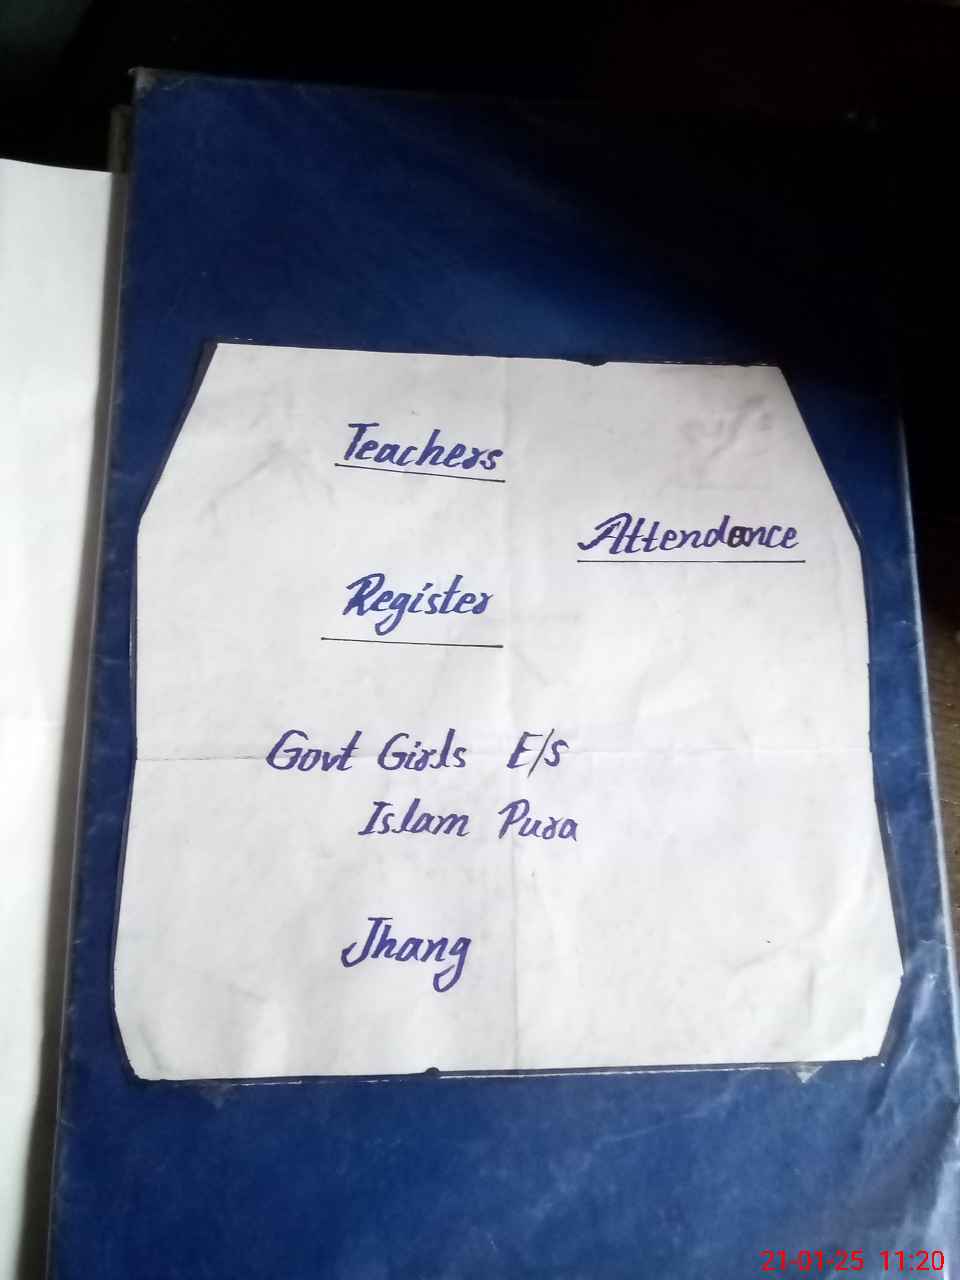 Teachers
Attendance
Register
Govt Girls E/S
Islam Pura
Jhang
21-01-25 11:20